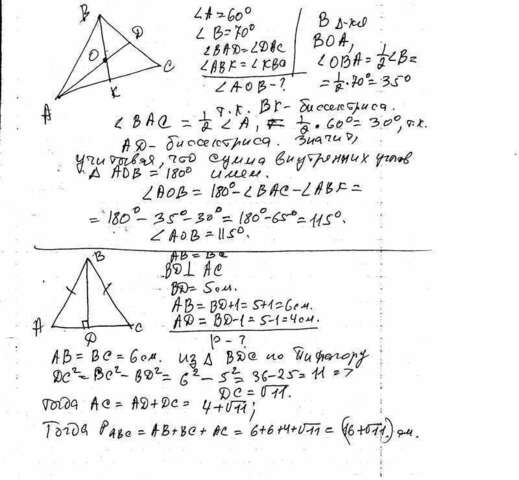 B
O
D
A
K
C
∠A=60°
∠B=70°
∠BAD=∠DAC
∠ABK=∠KBC
∠AOB-?
В Δ-ке
BOA,
∠OBA=½∠B=
=½·70°=35°
т.к. BK- биссектриса.
∠BAC = ½∠A, = ½·60°=30°, т.к.
AD- биссектриса. Значит,
учитывая, что сумма внутренних углов
Δ AOB=180° имеем.
∠AOB=180°-∠BAC-∠ABK=
=180°-35°-30°=180°-65°=115°.
∠AOB=115°.
B
A
D
C
AB=BC
BD⊥AC
BD=5см.
AB=BD+1=5+1=6см.
AD=BD-1=5-1=4см.
P-?
AB=BC=6см. из Δ BDC по Пифагору
DC²=BC²-BD²=6²-5²=36-25=11=>
DC=√11.
Тогда AC=AD+DC=4+√11;
Тогда P ABC=AB+BC+AC=6+6+4+√11=(16+√11)см.